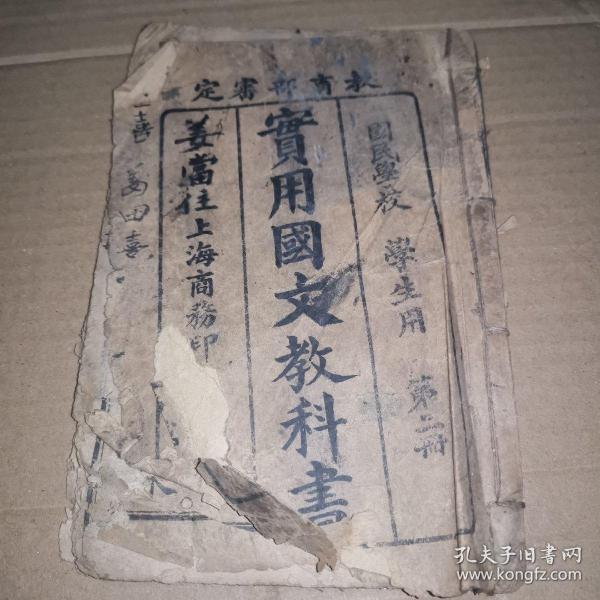 教育部審定
國民學校 學生用 第二冊
實用國文教科書
姜當往上海商務印
姜田喜
孔夫子旧书网
www.kongfz.com